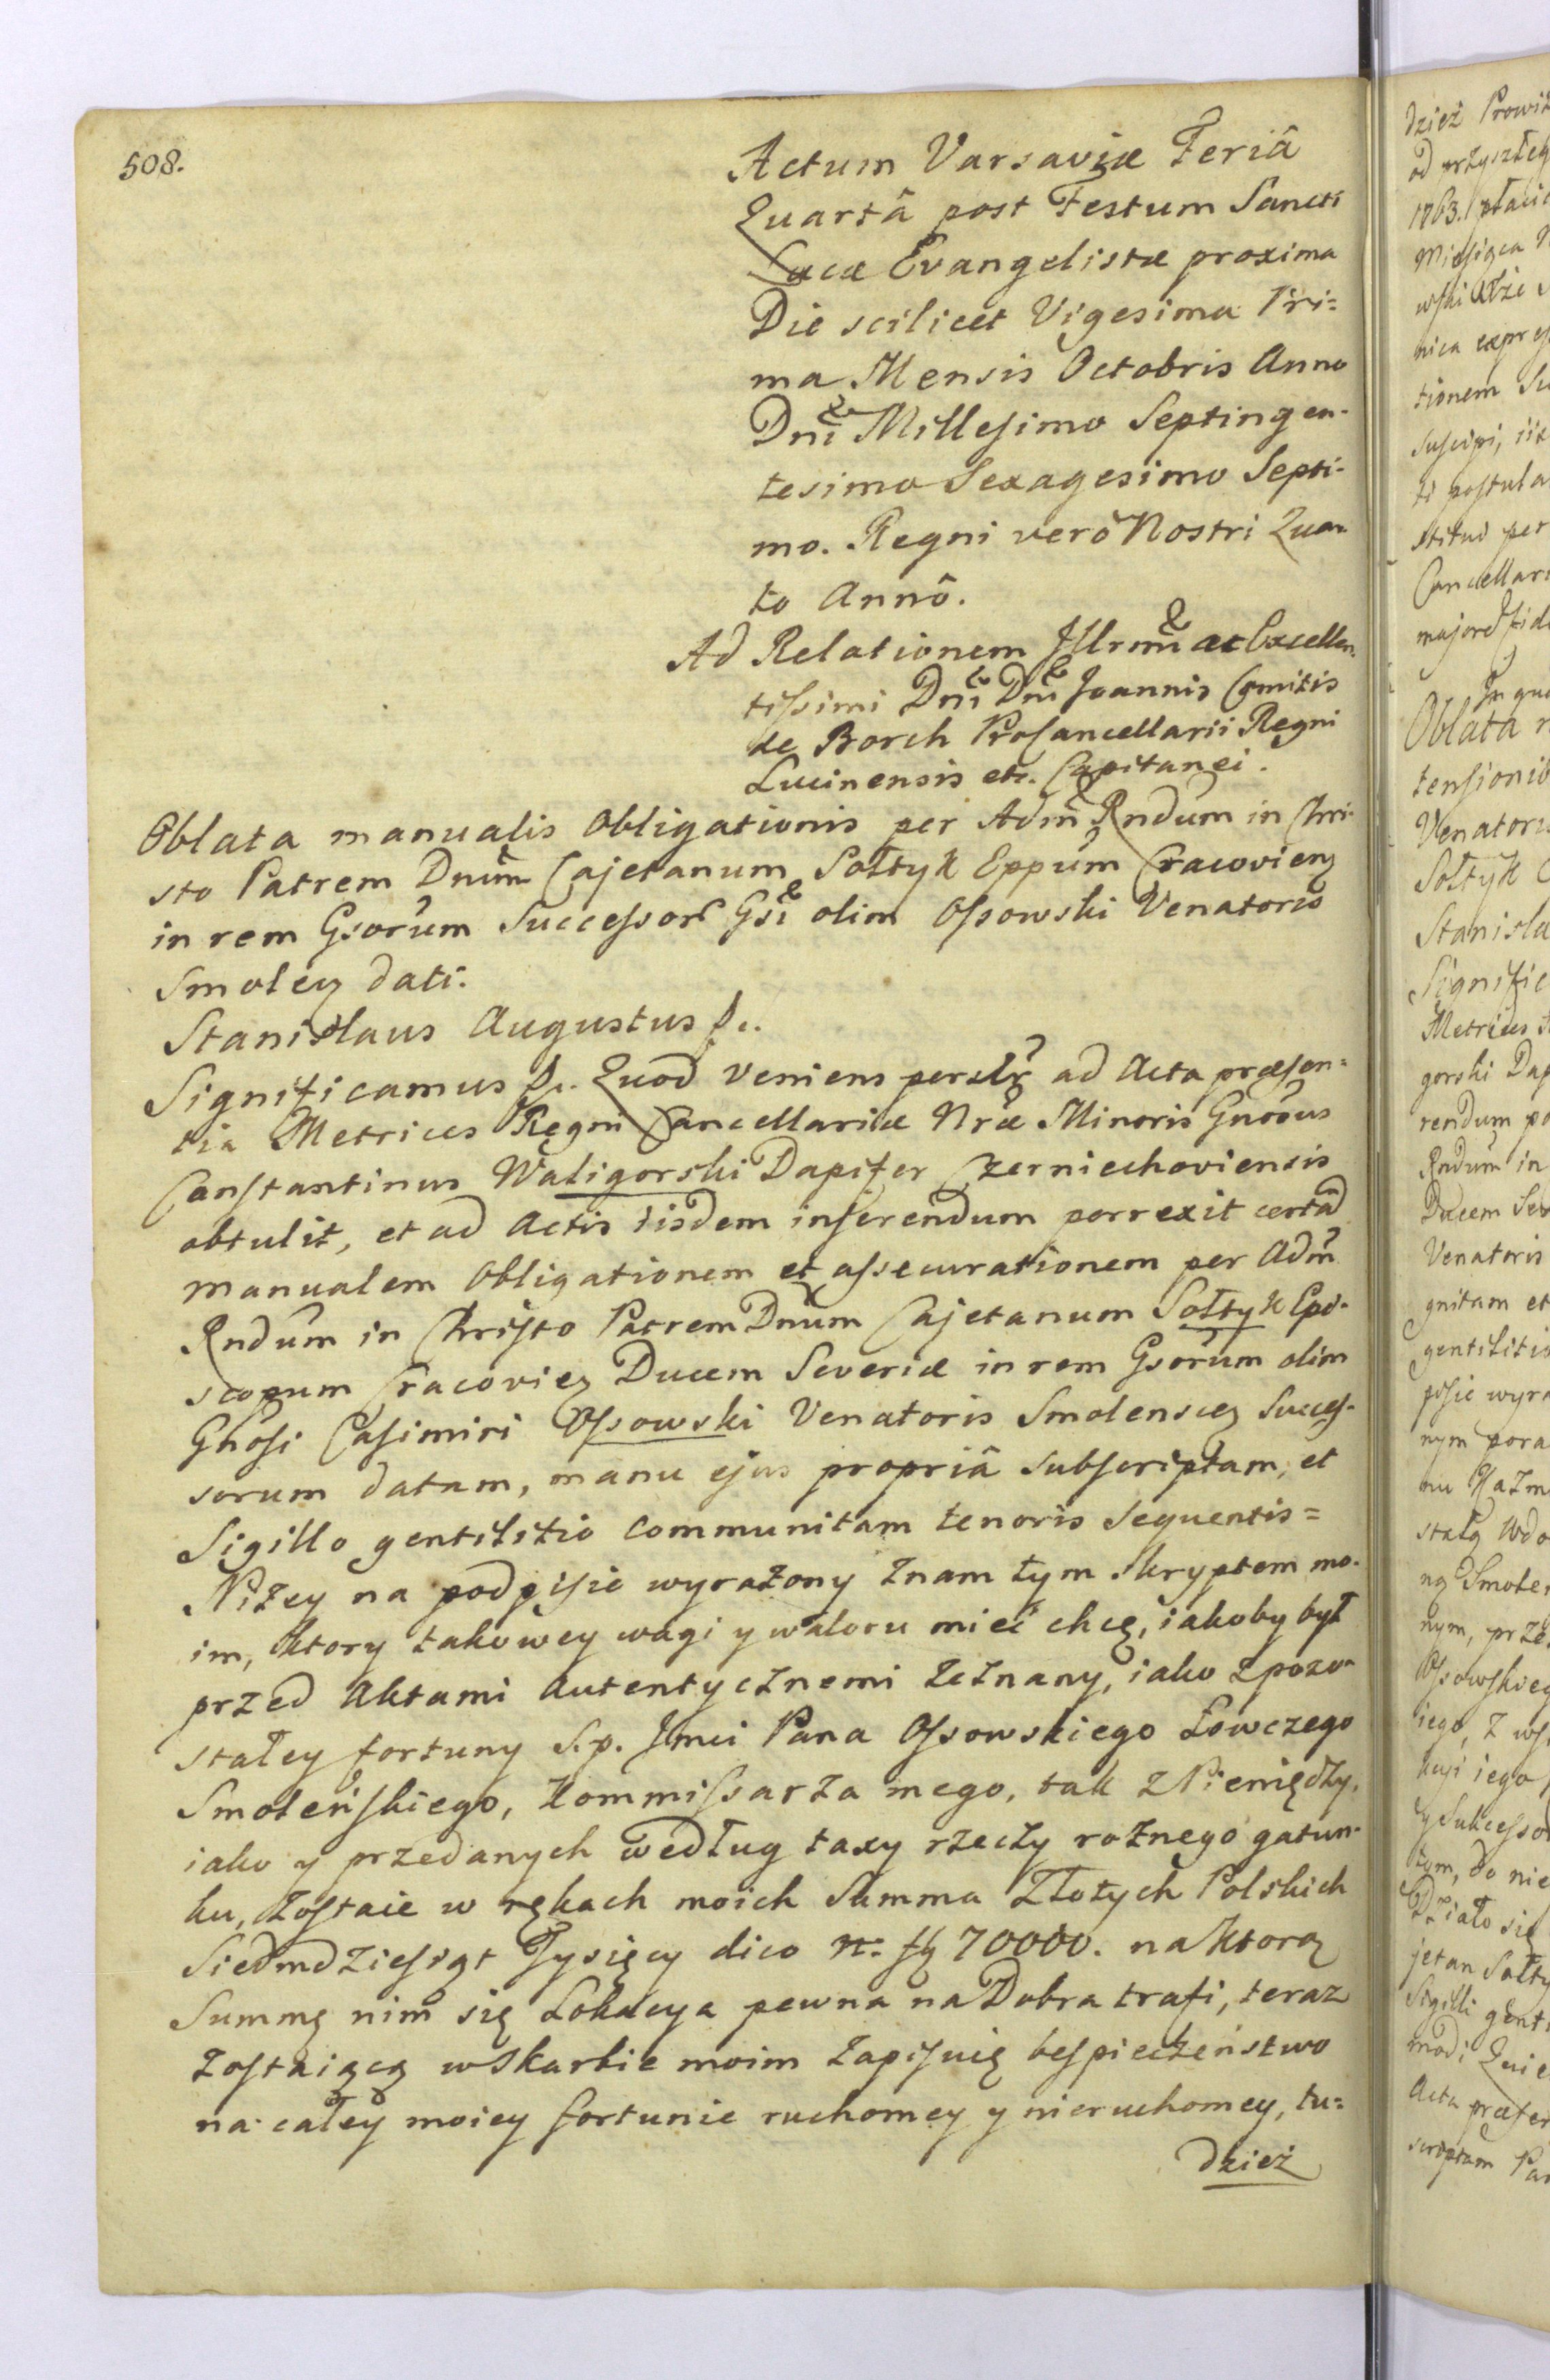 508.
Actum Varsaviæ Feriâ
Quartâ post Festum Sancti
Lucæ Evangelistæ proxima
Die scilicet Vigesima Pri=
ma Mensis Octobris Anno
Dni Millesimo Septingen-
tesimo Sexagesimo Septi-
mo. Regni verò Nostri Quar-
to Annô.
Ad Relationem Illrmi ac Excellen-
tissimi Dni Dni Joannis Comitis
de Borch ProCancellarii Regni
Lucinensis etc. Capitanei.
Oblata manualis Obligationis per Adm Rndum in Chri-
sto Patrem Dnum Cajetanum Sołtyk Eppum Cracovien
in rem Gsorum Successor Gsi olim Ossowski Venatoris
Smolen dati.
Stanislaus Augustus &c.
Significamus &c. Quod veniens persltr ad Acta præsen=
tia Metrices Regni Cancellariæ Nræ Minoris Gnosus
Constantinus Waligorski Dapifer Czerniechoviensis
obtulit, et ad Actis iisdem inserendum porrexit certam
manualem Obligationem et assecurationem per Adm
Rndum in Christo Patrem Dnum Cajetanum Sołtyk Epi-
scopum Cracovien Ducem Severiæ in rem Gsorum olim
Gnosi Casimiri Ossowski Venatoris Smolenscen Succes-
sorum datam, manu ejus propriâ subscriptam, et
Sigillo gentilitio communitam tenoris sequentis=
Niżey na podpisie wyrażony znam tym skryptem mo-
im, ktory takowey wagi y waloru mieć chcę, iakoby był
przed Aktami Autentycznemi zeznany, iako z pozo-
stałey fortuny S.p. Jmci Pana Ossowskiego Łowczego
Smoleńskiego, Kommissarza mego, tak z Pieniędzy,
iako y przedanych według taxy rzeczy rożnego gatun-
ku, zostaie w rękach moich Summa Złotych Polskich
Siedmdziesiąt Tysięcy dico n: fl 70000. na ktorą
Summę nim się Lokacya pewna na Dobra trafi, teraz
zostaiącą w Skarbie moim zapisuię bespieczeństwo
na całey moiey fortunie ruchomey y nieruchomey, tu=
dzież
dzież
od przyszłeg
1763. płacic
Miesiąca
nica
tionem
suscipi,
ti postula
stitui per
Cancellari
Oblata
tensionib
Venatori
Sołtyk
Stanisla
Signific
Metrices
gorski Dap
rendum po
Rndum in
Ducem Sev
Venatoris
gnitam et
gentilitio
pisie wyra
nym
stałą Wdo
ną Smolen
nym, prze
Ossowskieg
iego, z
iego
y Sukcesso
tym, do nie
Działo się
jetan Sołty
Sigilli genti
Acta præsen
scriptam